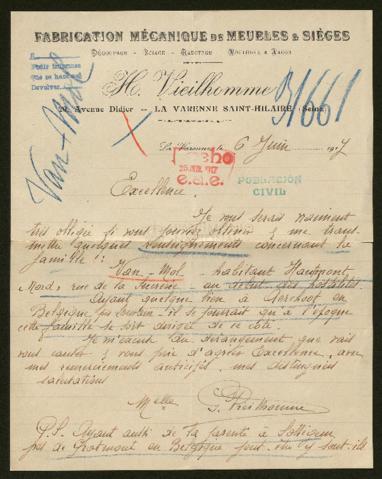 FABRICATION MÉCANIQUE DE MEUBLES & SIÈGES
DÉCOUPAGE - SCIAGE - RABOTAGE
H. Vieilhomme
29, Avenue Didier - LA VARENNE SAINT-HILAIRE (Seine)
91661
Van-Mol
La Varenne, le 6 Juin 1917
POBLACIÓN
CIVIL
Excellence,
Je vous serais vraiment
très obligée si vous pouviez obtenir & me trans
mettre quelques renseignements concernant la
famille :
Van-Mol - habitant Hautmont
Nord, rue de la - au début des hostilités
Ayant quelque bien à Aerschot en
Belgique il se pourrait qu'à l'époque
cette famille se soit dirigée de ce côté.
M'excusant du dérangement, que vais
vous causer & vous prie d'agréer Excellence, avec
mes remerciements anticipés, mes distinguées
salutations
Melle Vieilhomme
P.S. Ayant aussi de la parenté à Sottegem
près de en Belgique peut-être y sont-ils